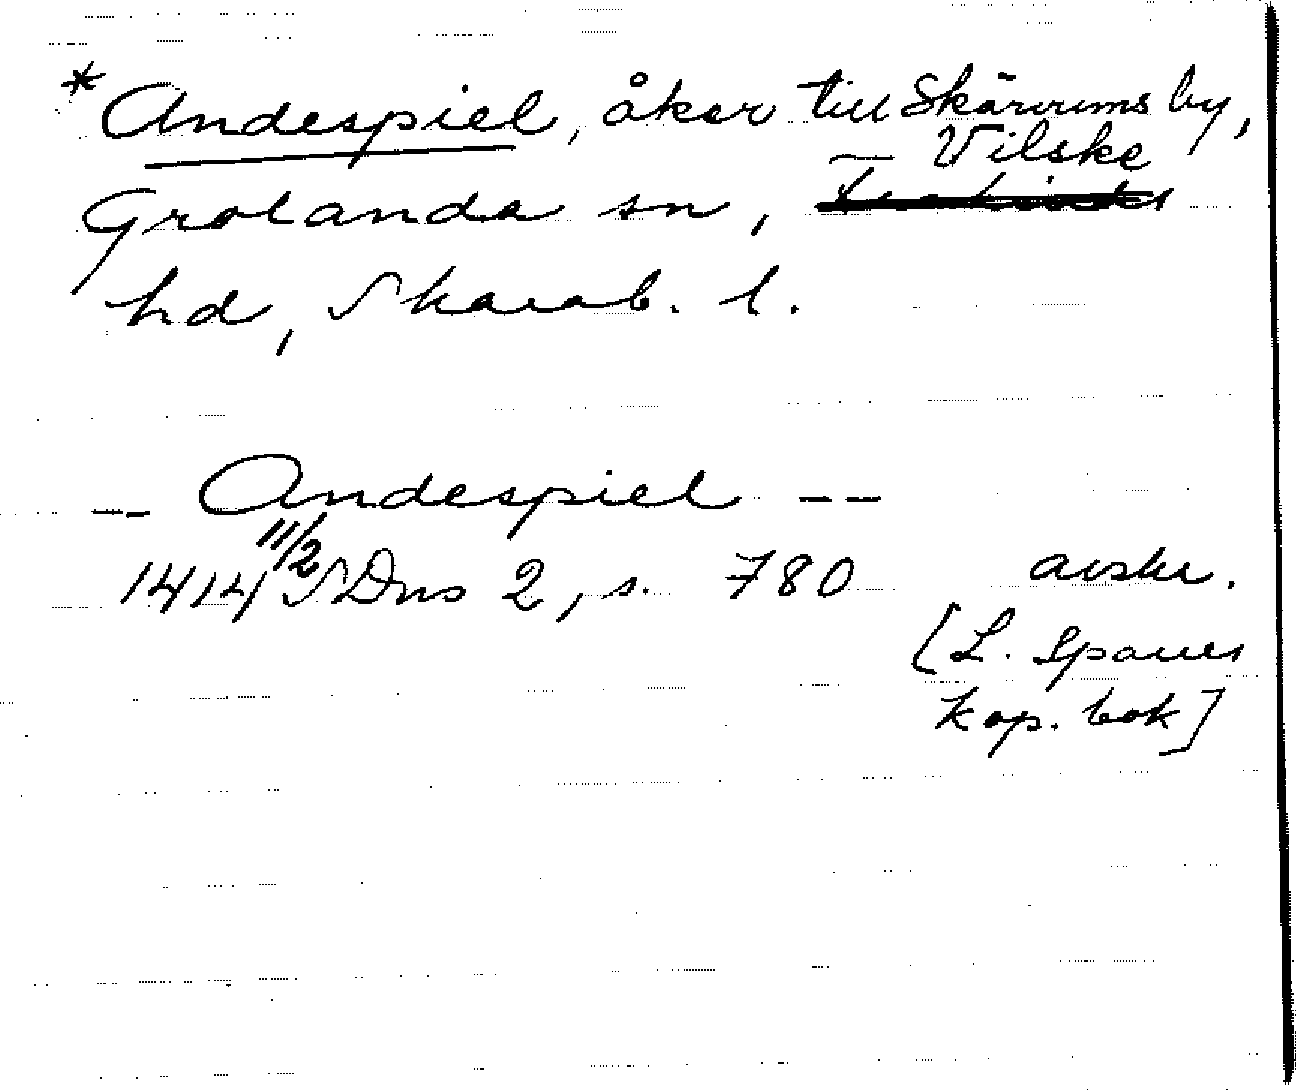 *Andespiel, åker till Skärvums by,
Grolanda sn, Vilske
hd, Skarab. l.
-- Andespiel --
1414 11/2 SDns 2, s. 780 avskr.
[L. Sparres
kop. bok]